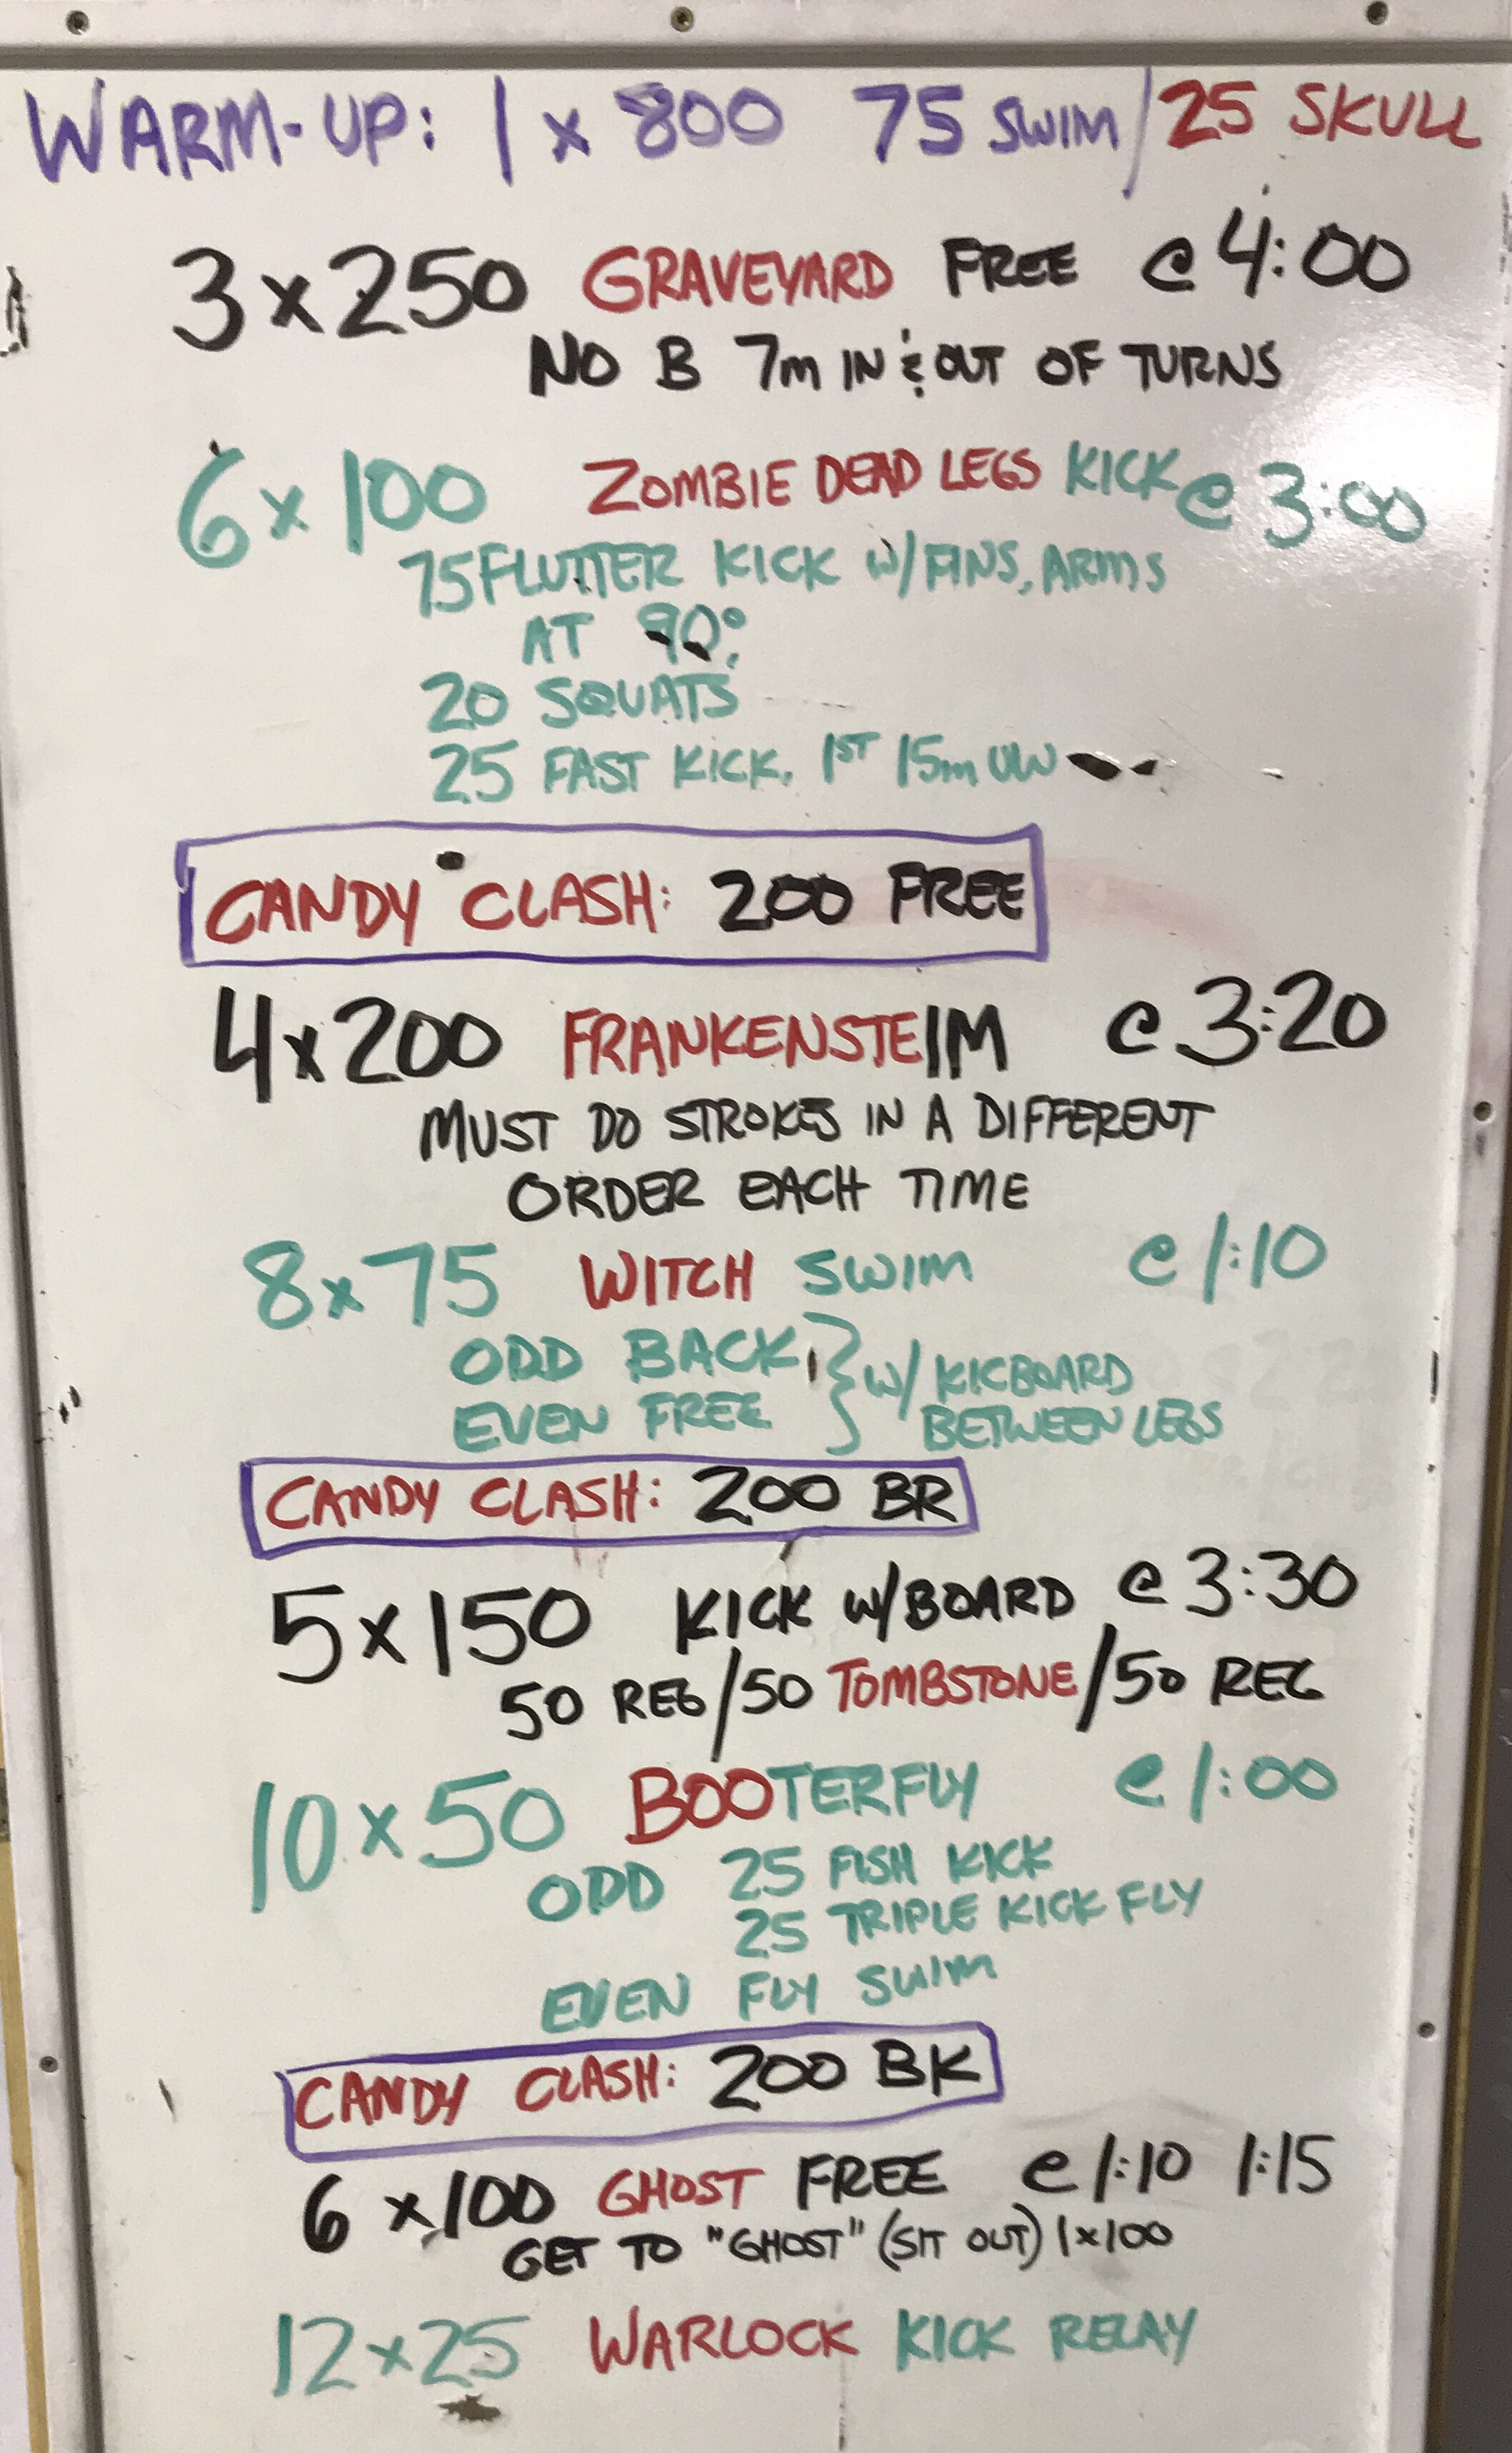 WARM-UP: 1 x 800 75 SWIM/25 SKULL
3x250 GRAVEYARD FREE @ 4:00
NO B 7m IN & OUT OF TURNS
6x100 ZOMBIE DEAD LEGS KICK @ 3:00
75 FLUTTER KICK W/FINS, ARMS
AT 90°.
20 SQUATS
25 FAST KICK. 1ST 15m UW
CANDY CLASH: 200 FREE
4x200 FRANKENSTEIM @ 3:20
MUST DO STROKES IN A DIFFERENT
ORDER EACH TIME
8x75 WITCH SWIM @ 1:10
ODD BACK } W/ KICBOARD
EVEN FREE } BETWEEN LEGS
CANDY CLASH: 200 BR
5x150 KICK W/BOARD @ 3:30
50 REG/50 TOMBSTONE/50 REG
10x50 BOOTERFLY @ 1:00
ODD 25 FISH KICK
25 TRIPLE KICK FLY
EVEN FLY SWIM
CANDY CLASH: 200 BK
6 x100 GHOST FREE @ 1:10 1:15
GET TO "GHOST" (SIT OUT) 1x100
12x25 WARLOCK KICK RELAY